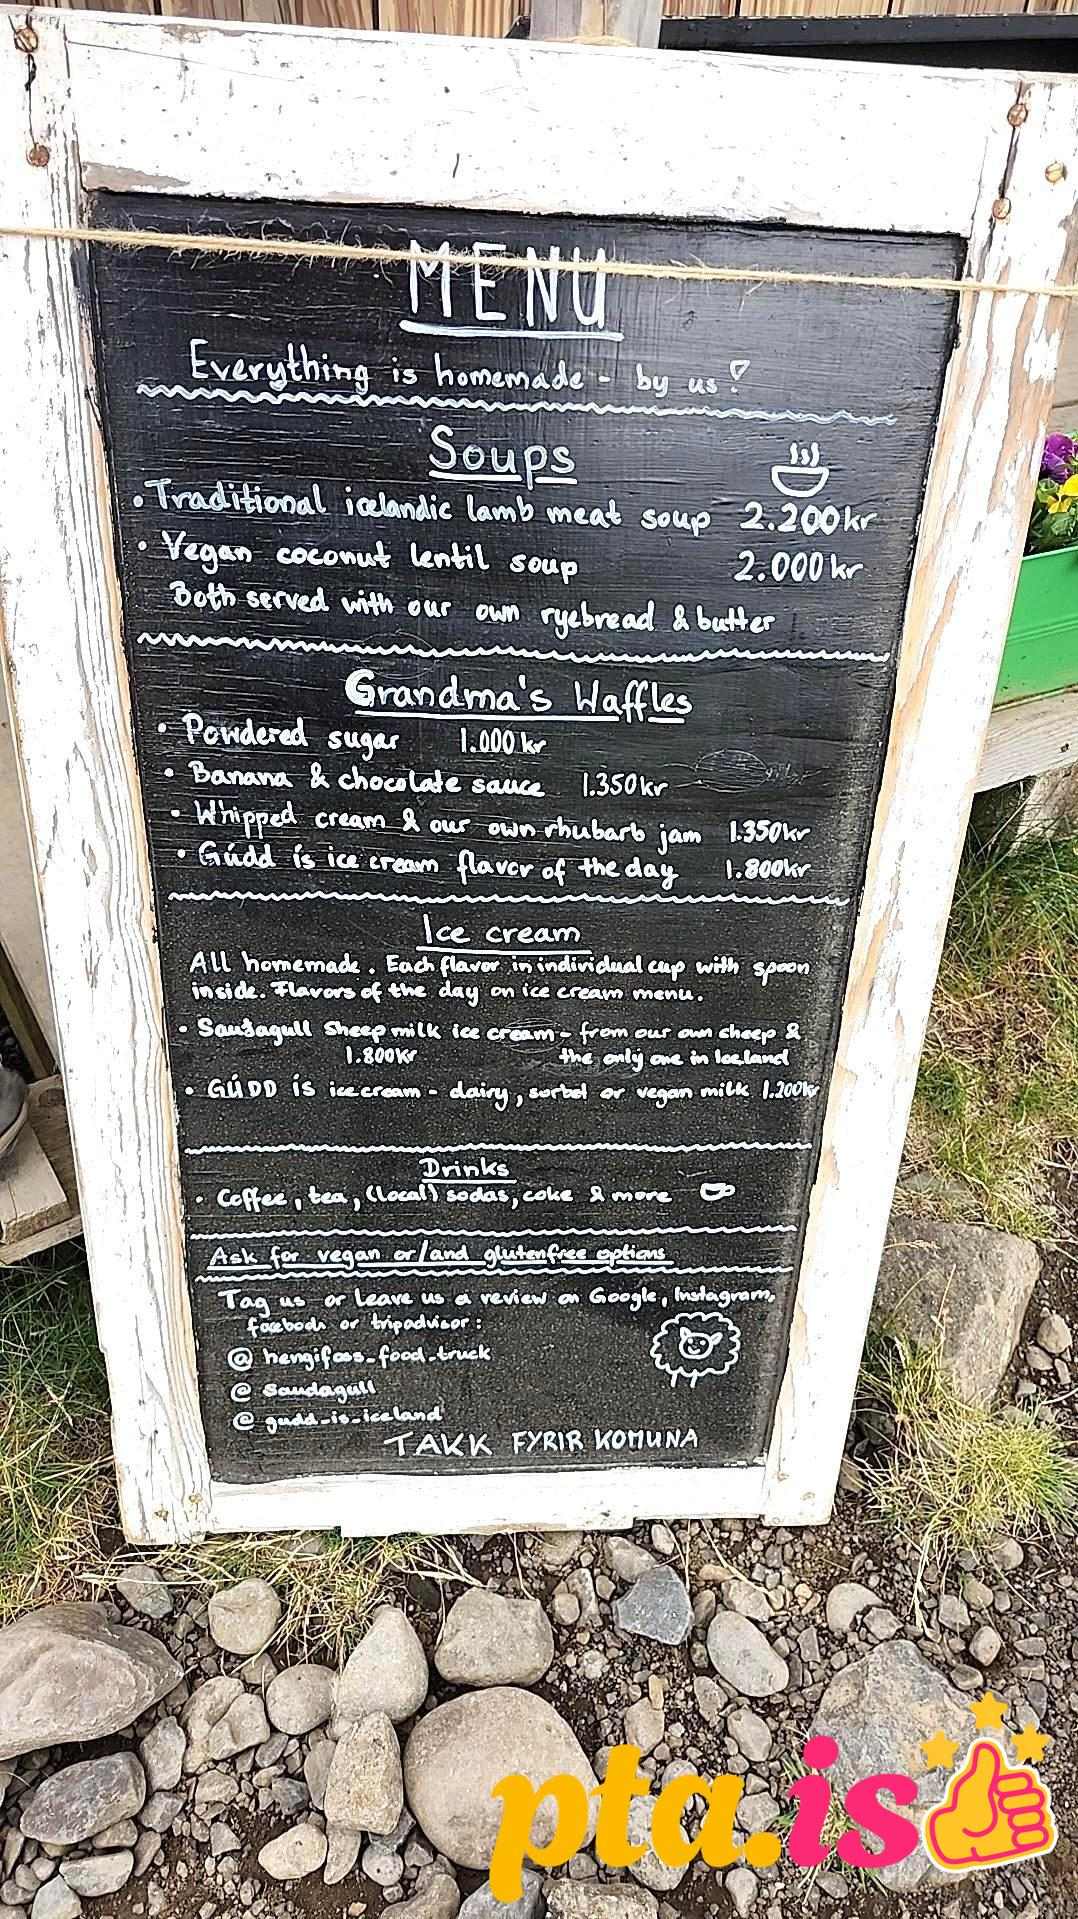 MENU
Everything is homemade - by us!
Soups
• Traditional icelandic lamb meat soup 2.200kr
• Vegan coconut lentil soup 2.000kr
Both served with our own ryebread & butter
Grandma's Waffles
• Powdered sugar 1.000 kr
• Banana & chocolate sauce 1.350kr
• Whipped cream & our own rhubarb jam 1.350kr
• Gúdd ís ice cream flavor of the day 1.800kr
Ice cream
All homemade. Each flavor in individual cup with spoon
inside. Flavors of the day on ice cream menu.
• Sauðagull Sheep milk ice cream - from our own sheep &
1.800kr the only one in Iceland
• GÚDD ÍS ice cream - dairy, sorbet or vegan milk 1.200kr
Drinks
• Coffee, tea, (local) sodas, coke & more
Ask for vegan or/and glutenfree options
Tag us or leave us a review on Google, Instagram,
facebook or tripadvisor:
@ hengifoss_food_truck
@ saudagull
@ gudd_is_iceland
TAKK FYRIR KOMUNA
pta.is